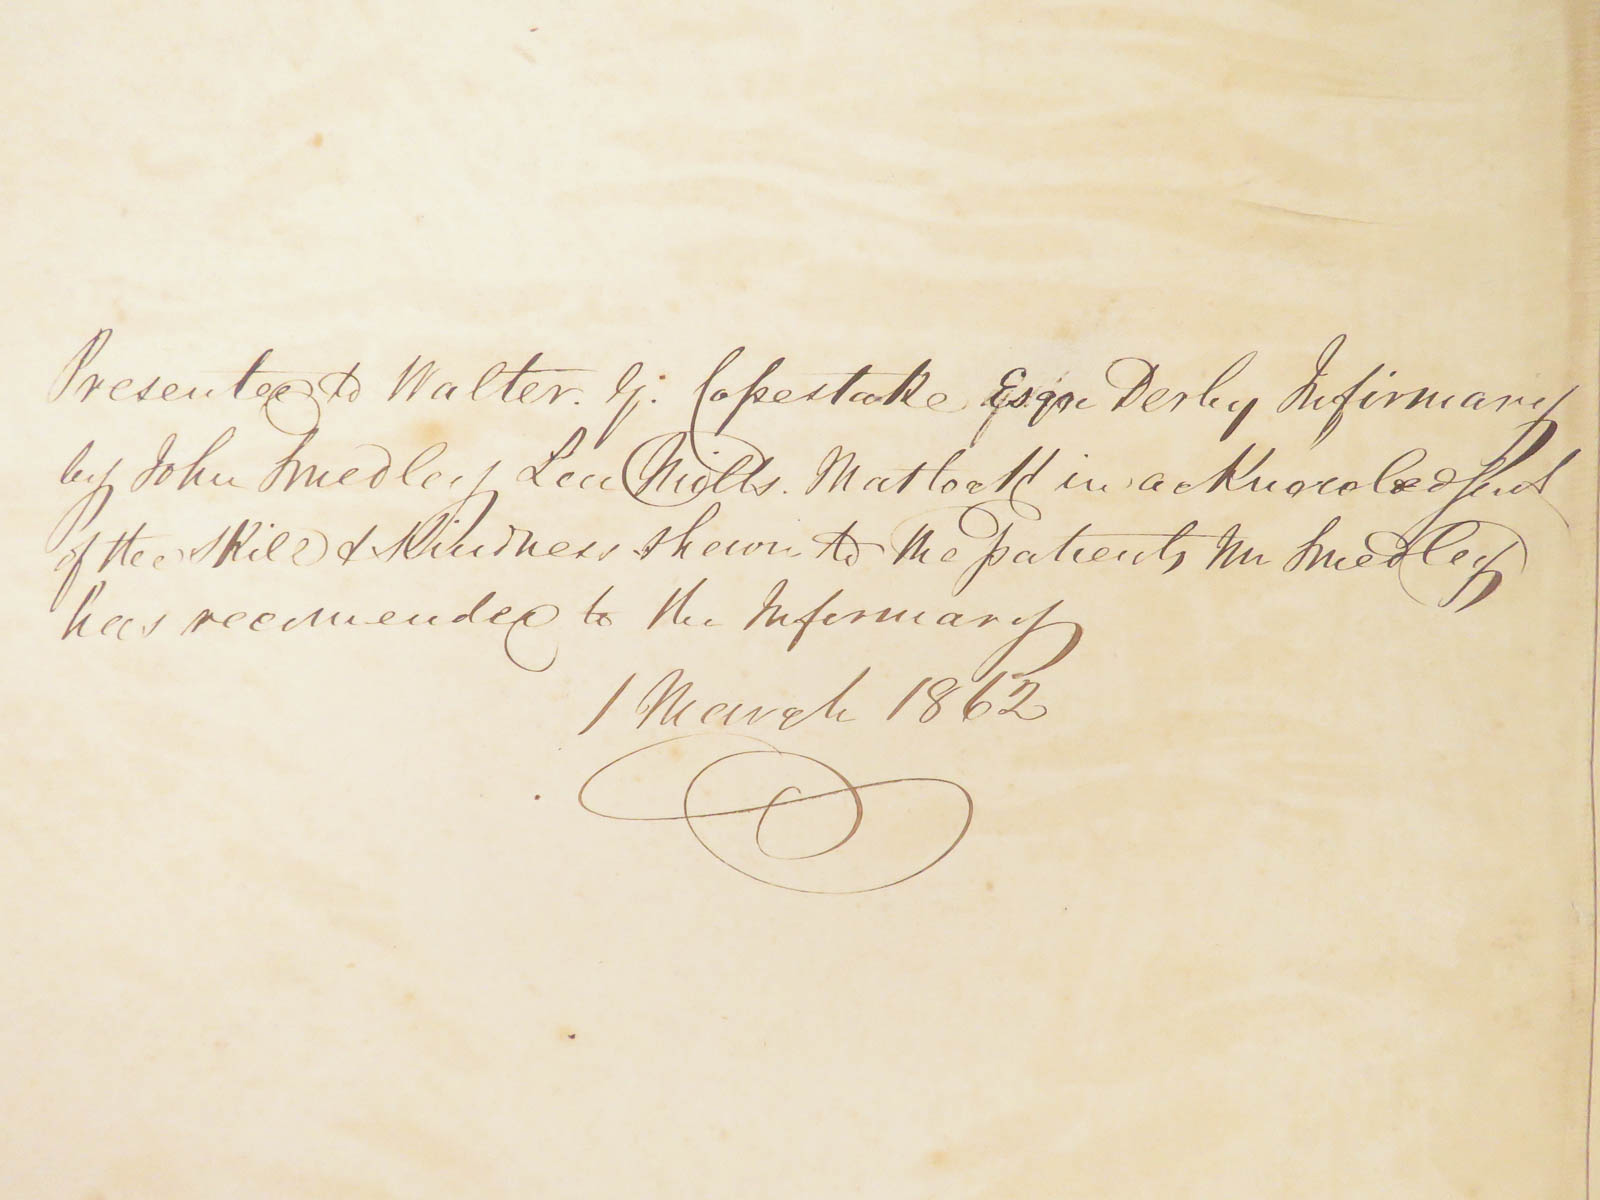 Presented to Walter. G. Copestake Esqre Derby Infirmary
by John Smedley Lea Mills. Matlock in acknowledgment
of the skill & kindness shewn to the patients Mr Smedley
has recomended to the Infirmary
1 March 1862